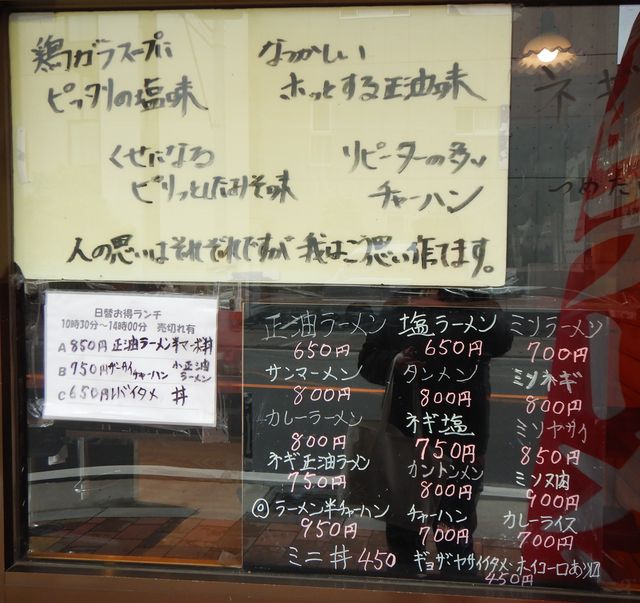 鶏ガラスープに
ピッタリの塩味
なつかしい
ホッとする正油味
くせになる
ピリッとしたみそ味
リピーターの多い
チャーハン
人の思いはそれぞれですが 我はご思い作てます。
日替お得ランチ
10時30分～14時00分 売切れ有
A 850円 正油ラーメン 半マーボ丼
B 750円 チャーハン 小正油ラーメン
C 650円 レバイタメ 丼
正油ラーメン
650円
サンマーメン
800円
カレーラーメン
800円
ネギ正油ラーメン
750円
◎ラーメン半チャーハン
950円
ミニ丼 450
塩ラーメン
650円
タンメン
800円
ネギ塩
750円
カントンメン
800円
チャーハン
700円
ミソラーメン
700円
ミソネギ
800円
ミソヤサイ
850円
ミソ肉
900円
カレーライス
700円
ギョーザ・ヤサイイタメ・ホイコーロあり〼
450円
ネギ
つめた